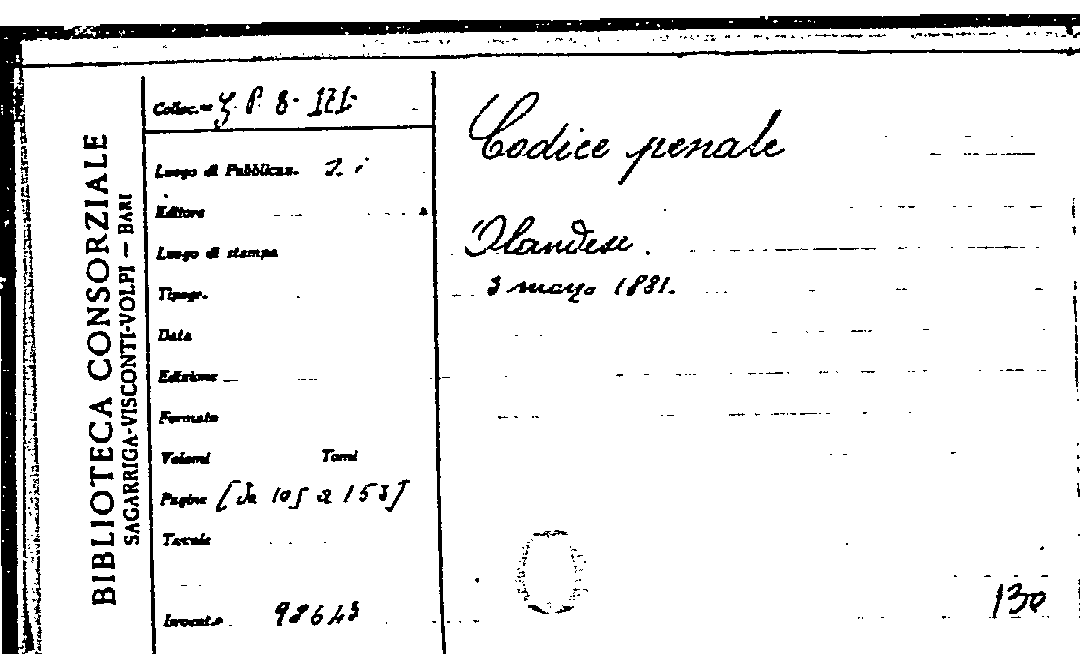 BIBLIOTECA CONSORZIALE
SAGARRIGA-VISCONTI-VOLPI — BARI
Colloc.ne
Luogo di Pubblicaz.
Editore
Luogo di stampa
Tipogr.
Data
Edizione
Formato
Volumi Tomi
Pagine [da 105 a 153]
Tavole
Invent.o 98643
Codice penale
Olandese.
3 marzo 1881.
130